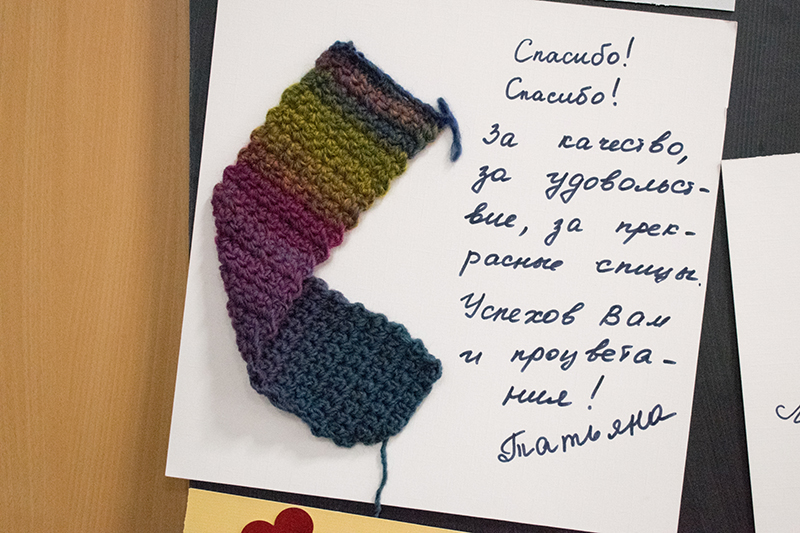 Спасибо!
Спасибо!
За качество,
за удовольст-
вие, за прек-
расные спицы.
Успехов Вам
и процвета-
ния!
Татьяна